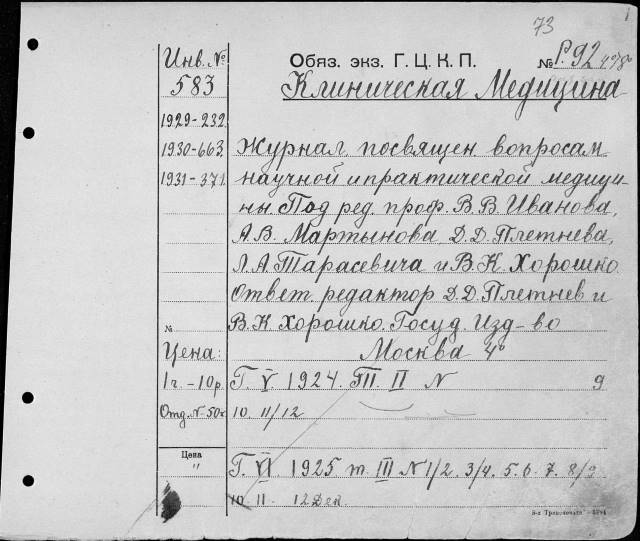 73
1
Инв. №
583
Обяз. экз. Г. Ц. К. П.
№ P.92
Клиническая Медицина
1929-232.
1930-663.
1931-371.
Журнал посвящен вопросам
научной и практической медици-
ны. Под ред. проф. В. В. Иванова,
А. В. Мартынова, Д. Д. Плетнева,
Л. А. Тарасевича и В. К. Хорошко.
Ответ. редактор Д. Д. Плетнев и
В. К. Хорошко. Госуд. Изд-во
№
Москва 4°
Цена:
1 г. - 10 р.
Отд. № 50к
Г. V 1924. Т. II N 9
10. 11/12
Цена
"
Г. VI 1925 т. III N 1/2. 3/4. 5. 6. 7. 8/9
10. 11. 12 Дек.